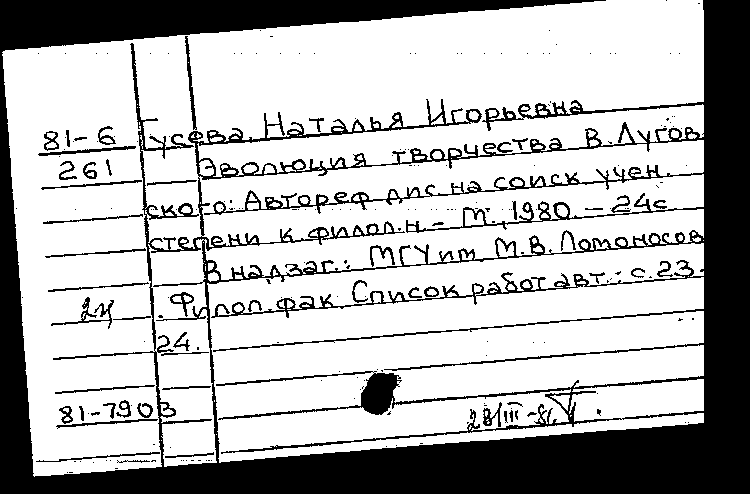 81-6 Гусева, Наталья Игоръевна
261 Эволюция творчества В. Лугов
ского: Автореф дис. на соиск учен.
степени к. филол. н. - М., 1980. - 24с
В надзаг.: МГУ им М. В. Ломоносов
2н . Филол. фак Список работ авт.: с. 23-
24.
81-7903
28/III-81.